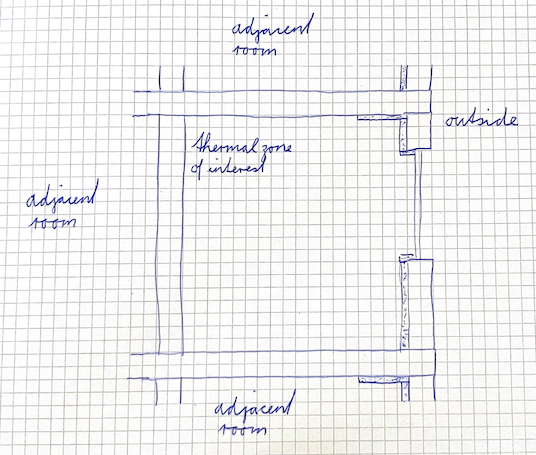 adjacent
room
outside
thermal zone
of interest
adjacent
room
adjacent
room